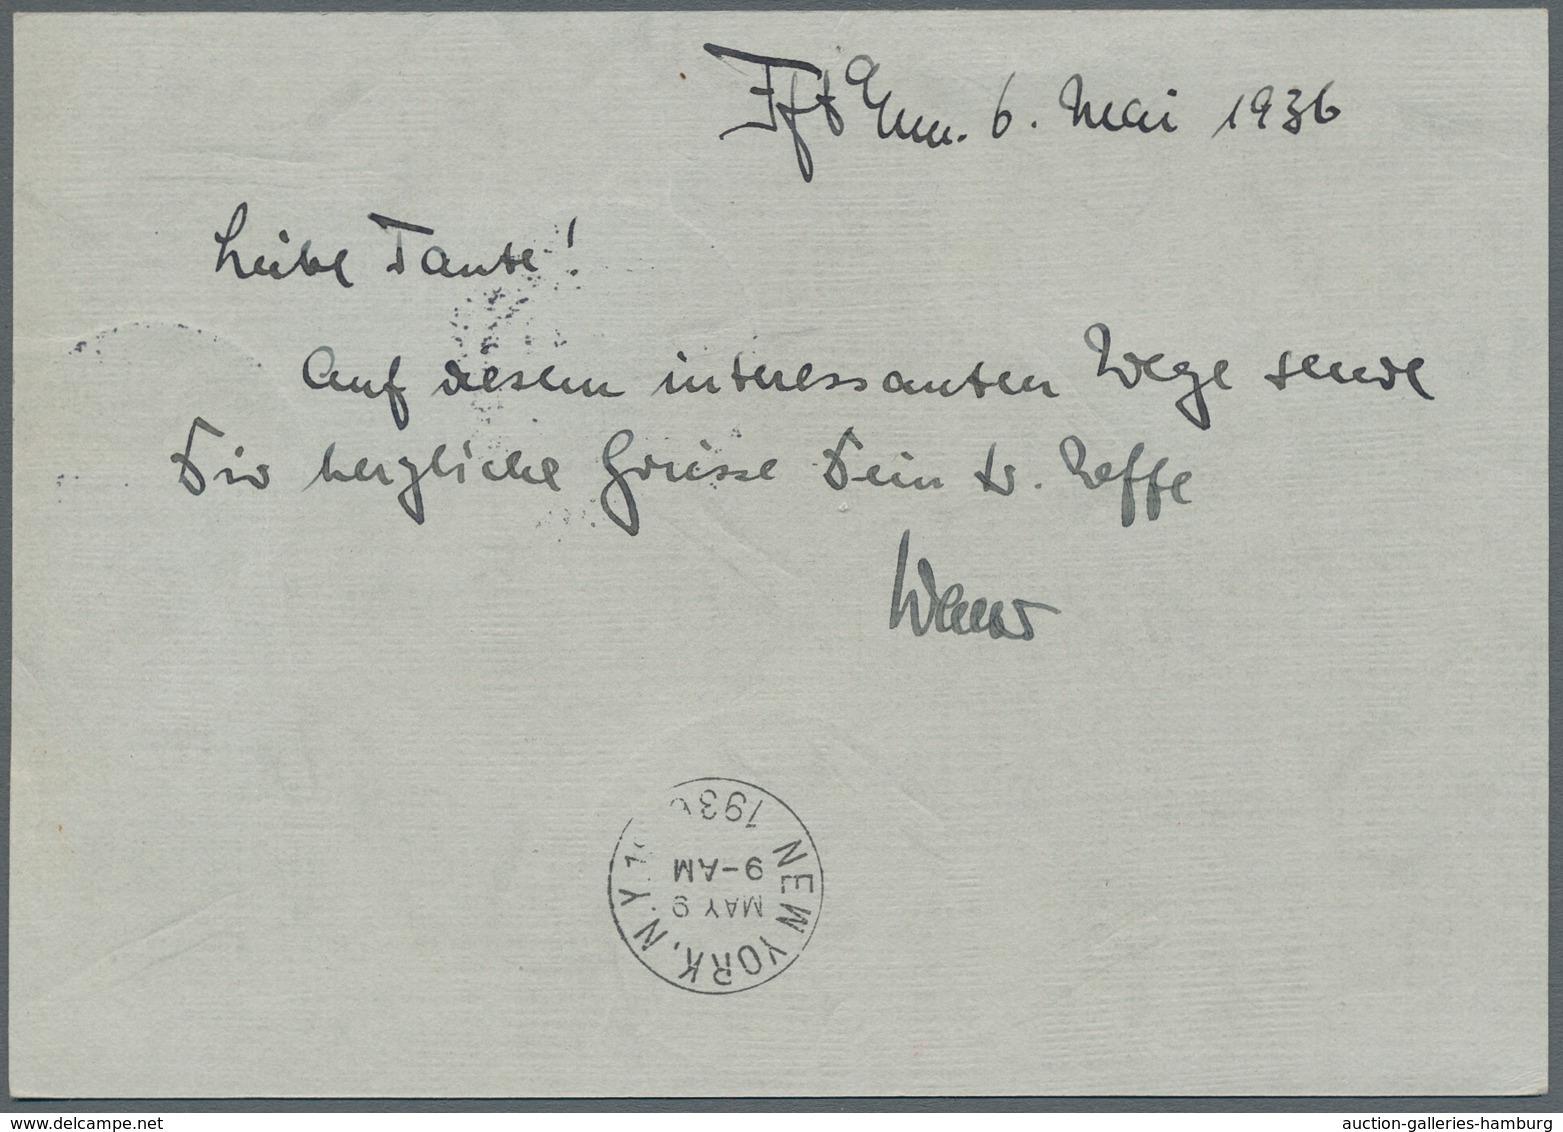 Fft a/m. 6. Mai 1936
Liebe Tante!
Auf diesem interessanten Wege sende
Dir herzliche Grüsse Dein tr. Neffe
NEW YORK, N.Y.
MAY 9
9-AM
1936
www.delcampe.net
auction-galleries-hamburg